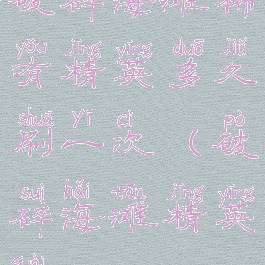 破碎海滩稀
yǒu jīng yīng duō jiǔ
有精英多久
shuā yī cì pò
刷一次（破
suì hǎi tān jīng yīng
碎海滩精英